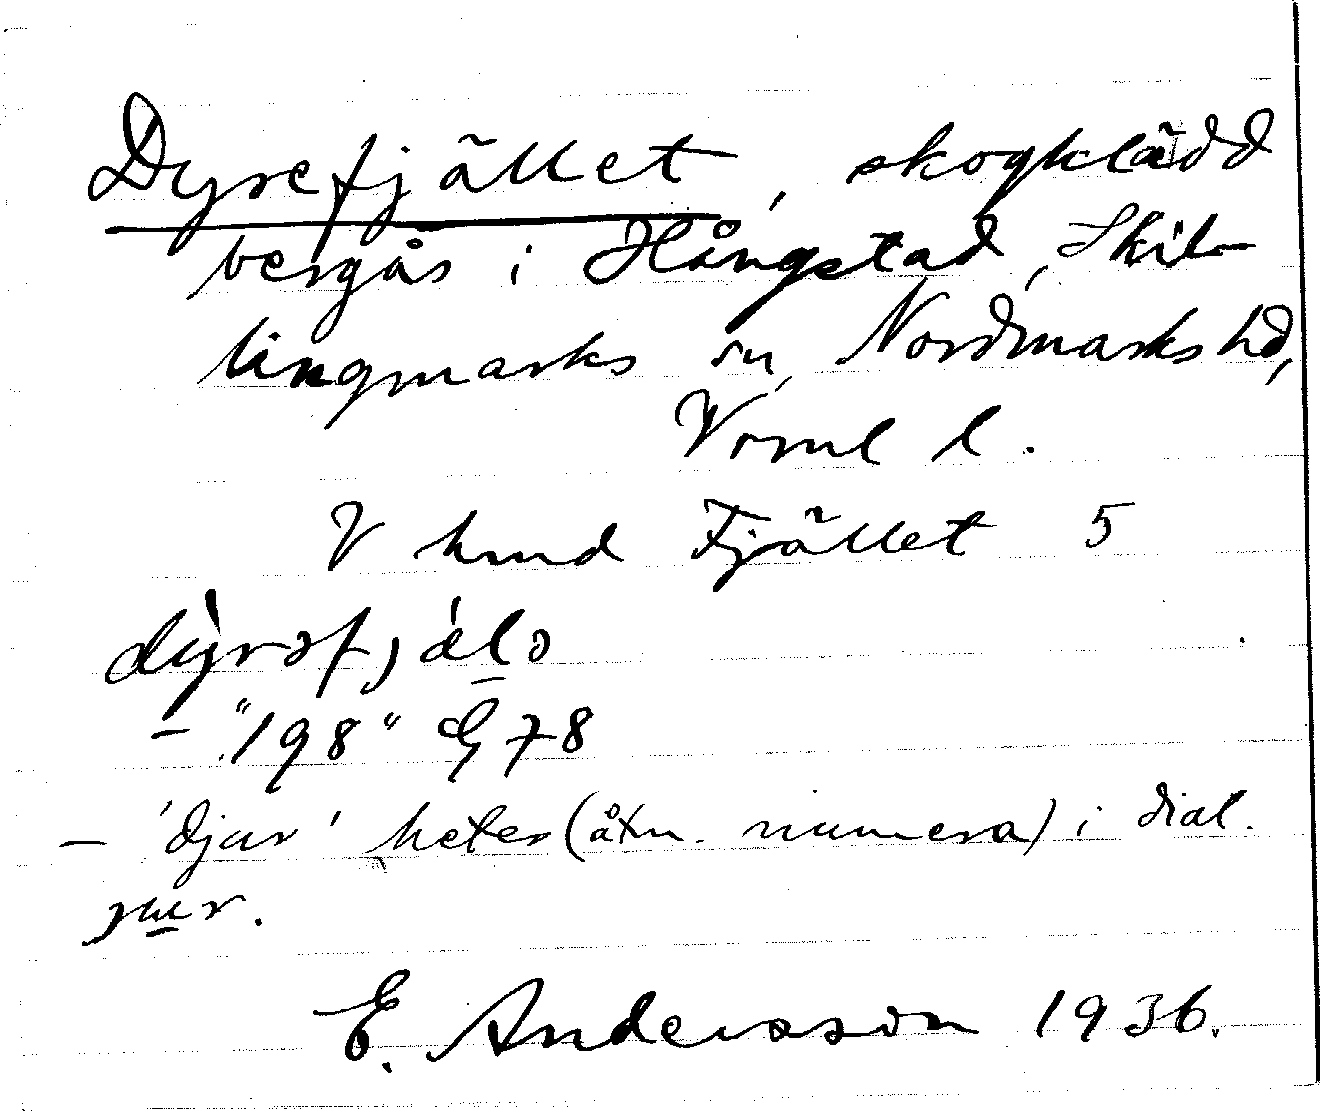 Dyrefjället, skogklädd
bergås i Hångstad, Skil-
lingmarks sn, Nordmarks hd,
Vrml l.
V hmd Fjället 5
– "198" G 78
– 'djur' heter (åtm. numera) i dial.
E. Andersson 1936.